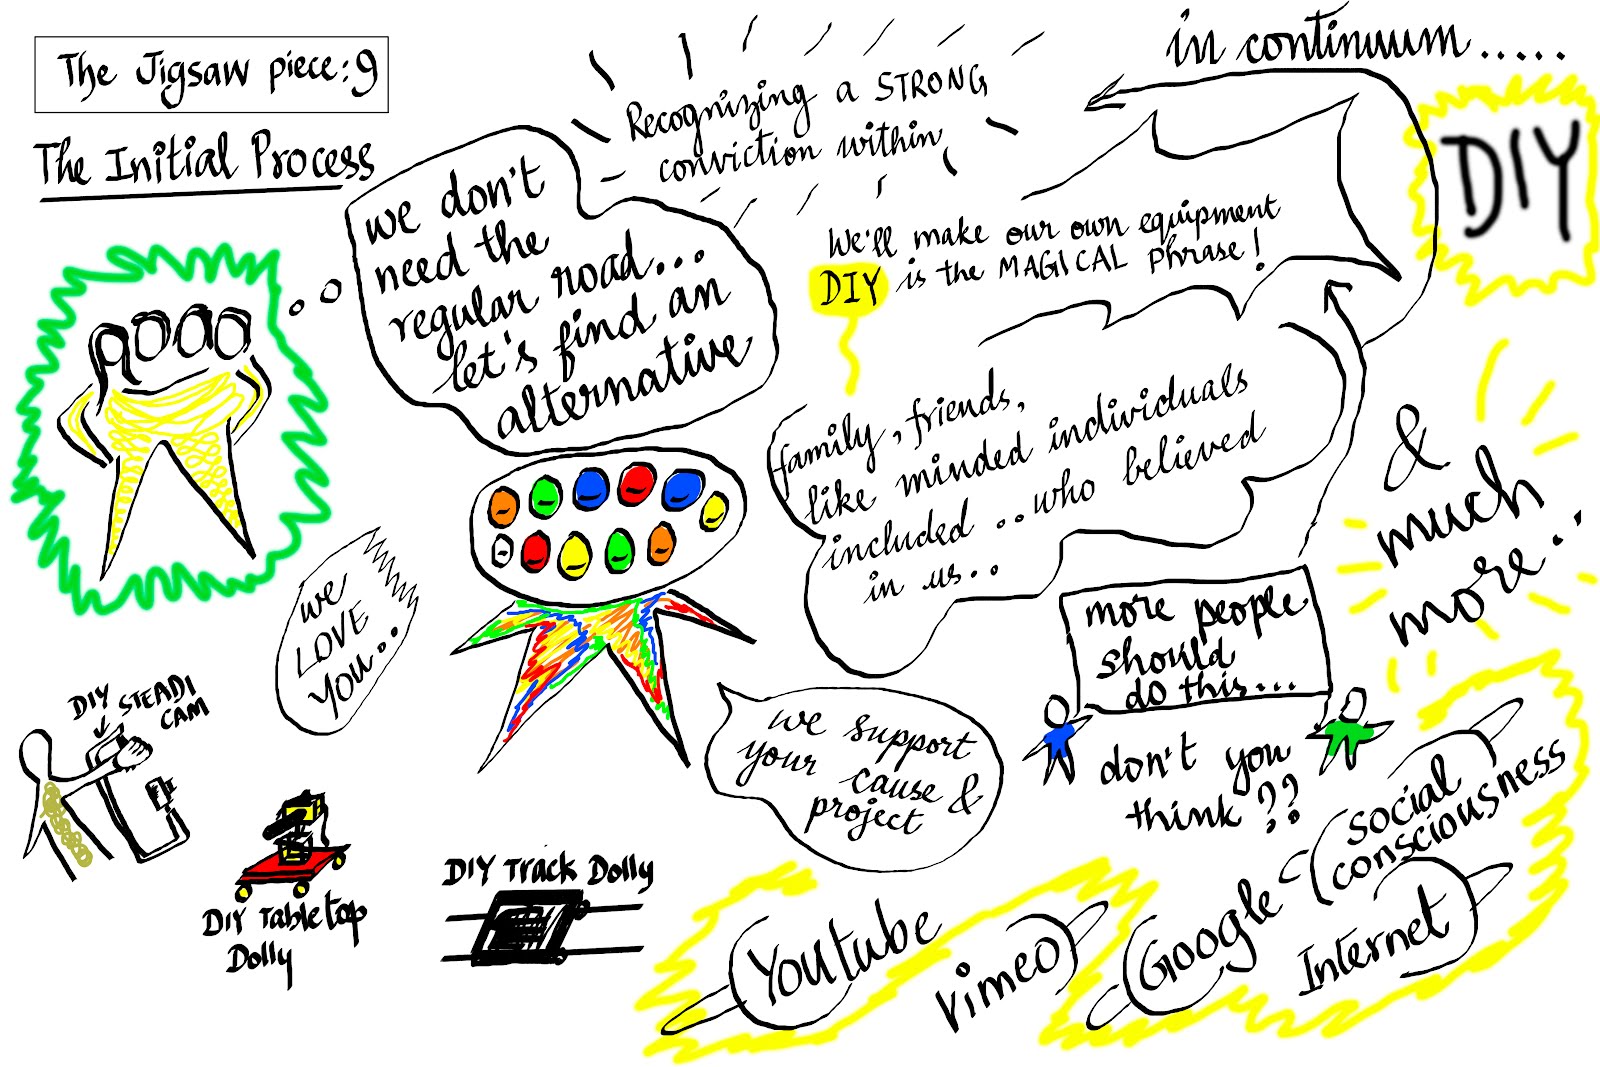 The Jigsaw piece:9
The Initial Process
we don't
need the
regular road...
let's find an
alternative
Recognizing a STRONG
conviction within
in continuum.....
DIY
We'll make our own equipment
DIY is the MAGICAL phrase!
family, friends,
like minded individuals
included ..who believed
in us..
&
much
more..
we
LOVE
YOU..
more people
should
do this...
don't you
think??
we support
your cause &
project
DIY STEADI
CAM
DIY Tabletop
Dolly
DIY Track Dolly
Youtube
Vimeo
Google
Social
consciousness
Internet